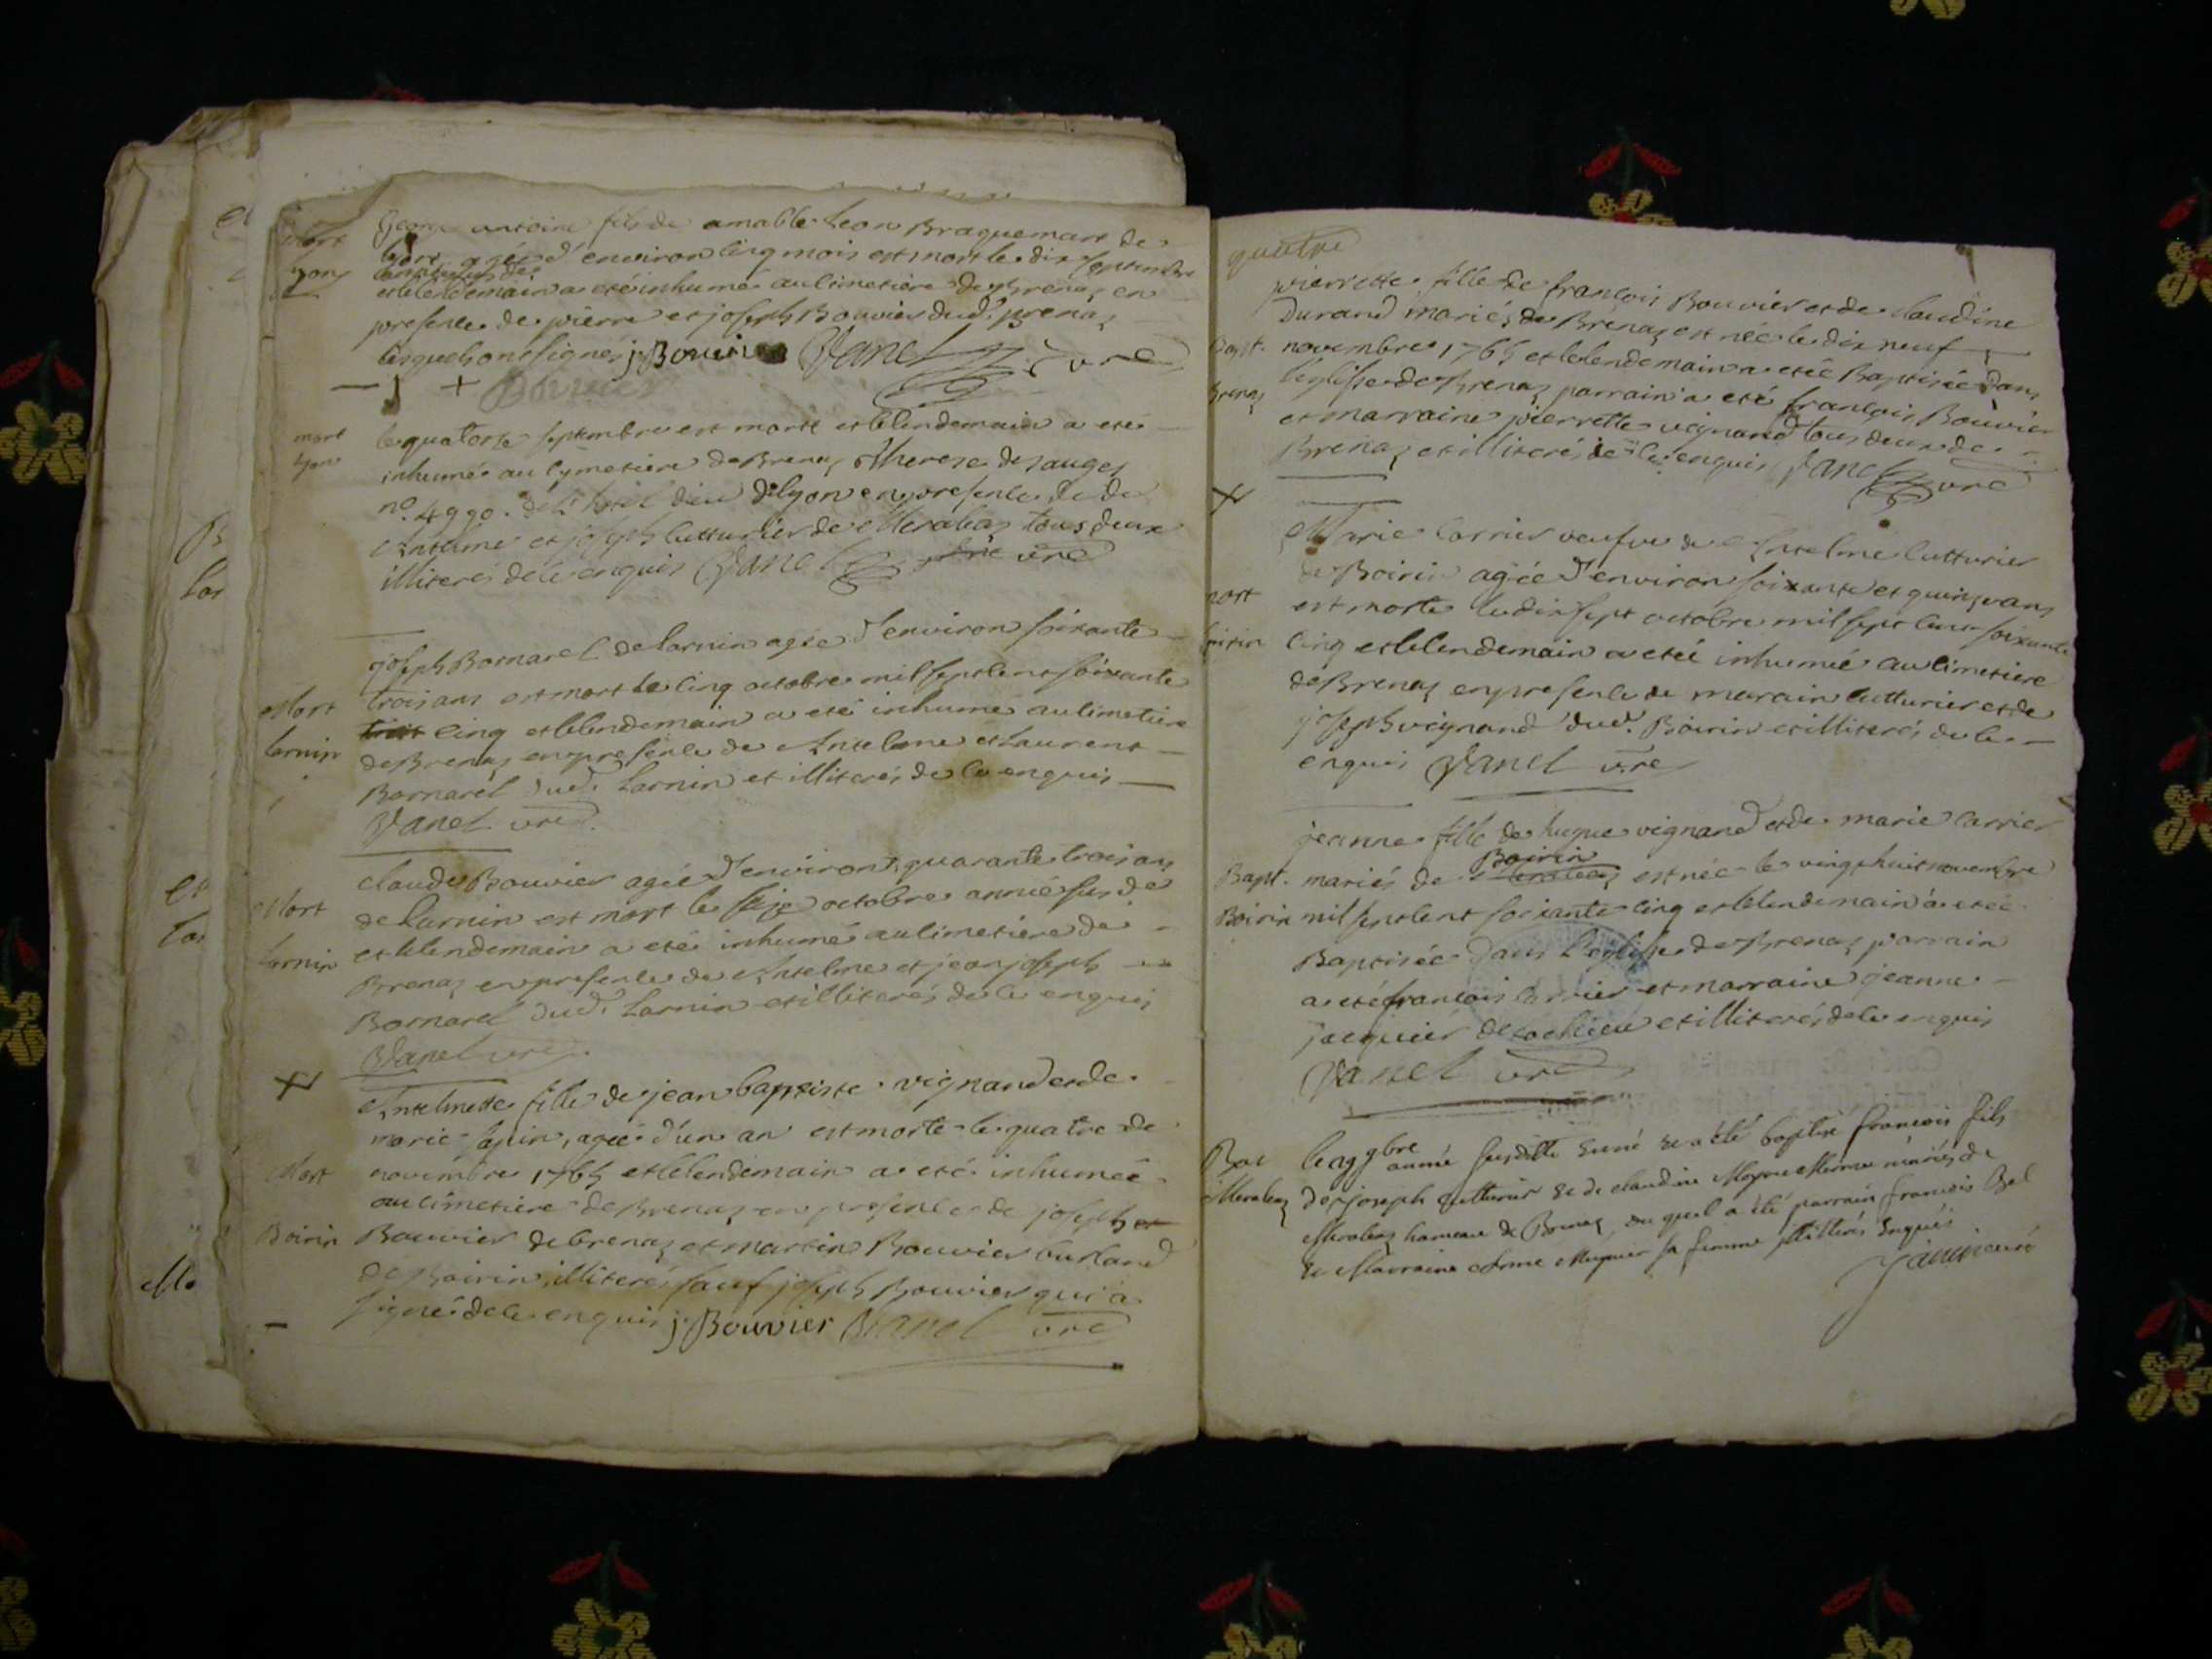 Mort
Lyon
George antoine fils de amable Leon Braquemart de
Lyon agéé d'environ cinq mois est mort le dix septembre
et lelendemain a eté inhumé au cimetiere de Brenaz en
presence de pierre et joseph Bouvier dud. Brenaz
lesquels ont signés j Bouvier Vanel curé
Bouvier
mort
Lyon
le quatorse septembre est morte et lelendemain a eté
inhumée au cymetiere de Brenaz Therese desauges
n° 4990. de l'hotel dieu de lyon en presence de
Antelme et joseph cutturier de Meraleaz tous deux
illiterés de ce enquis Vanel curé
Mort
Larnin
joseph Bornarel de Larnin agée d'environ soixante
trois ans est mort le cinq octobre mil sept cent soixante
cinq et lelendemain a eté inhumé au cimetiere
de Brenaz en presence de Antelme et Laurent
Bornarel dud. Larnin et illiterés de ce enquis
Vanel curé
Mort
Larnin
claude Bouvier agéé d'environt quarante trois ans
de Larnin est mort le seize octobre année susd.
et lelendemain a eté inhumé au cimetiere de
Brenaz en presence de Antelme et jean joseph
Bornarel dud. Larnin et illiterés de ce enquis
Vanel curé
Mort
Boirin
Antelmette fille de jean baptiste vignand et de
marie agée d'un an est morte le quatre de
novembre 1765 et lelendemain a eté inhumée
au cimetiere de Brenaz en presence de joseph et
Bouvier de brenaz et martin Bouvier burland
de Boirin illiterés sauf joseph Bouvier qui a
signé de ce enquis j Bouvier Vanel curé
quatre
Bapt.
Brenaz
pierrette fille de francois Bouvier et de claudine
Durand mariés de Brenaz est née le dix neuf
novembre 1765 et lelendemain a etéé Baptisée dans
l'eglisse de Brenaz parrain a eté francois Bouvier
et marraine pierrette vignand tous deux de
Brenaz et illiterés de ce enquis Vanel curé
mort
Boirin
Marie Carrier veufve de Antelme Cutturier
de Boirin agée d'environ soixante et quinze ans
est morte le dix sept octobre mil sept cent soixante
cinq et lelendemain a etéé inhumée au cimetiere
de Brenaz en presence de marain cutturier et de
joseph vignand dud. Boirin et illiterés de ce
enquis Vanel curé
Bapt.
Boirin
jeanne fille de hugue vignand et de marie Carrier
Boirin
mariés de est née le vingt huit novembre
mil sept cent soixante cinq et lelendemain a etéé
Baptisée dans l'eglisse de Brenaz parrain
a eté francois Carrier et marraine jeanne
jacquier de Lochieu et illiterés de ce enquis
Vanel curé
Bat
Meraleaz
le 29 9bre année susditte est né et a été baptisé francois fils
de joseph cutturier et de claudine mariés de
Meraleaz hameau de Brenaz, du quel a été parrain francois Bel
et Marraine sa femme illitérés enquis
curé